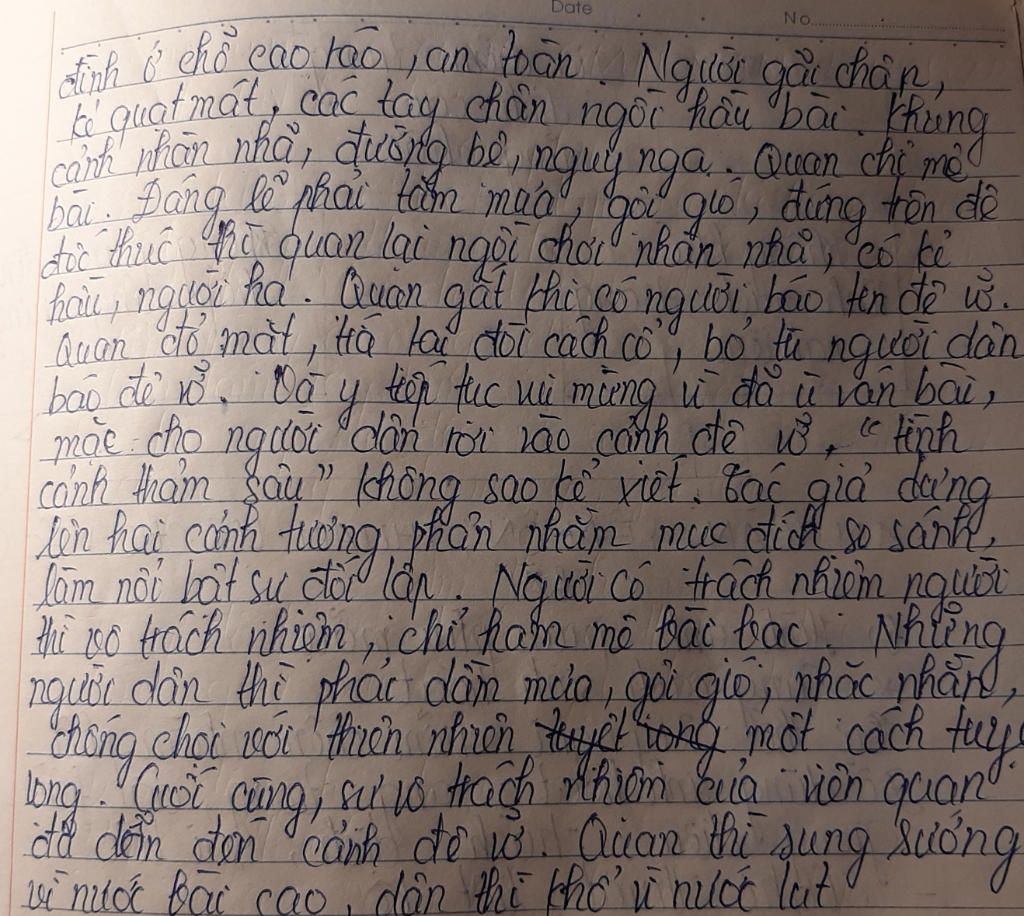 Date No
đình ở chỗ cao ráo, an toàn. Người gãi chân,
kẻ quạt mát, các tay chân ngồi hầu bài. Khung
cảnh nhàn nhã, đường bệ, nguy nga. Quan chỉ mê
bài. Đáng lẽ phải tắm mưa, gội gió, đứng trên đê
đốc thúc thì quan lại ngồi chơi nhàn nhã, có kẻ
hầu, người hạ. Quan gắt khi có người báo tin đê vỡ.
Quan đỏ mặt, trả lại đòi cách cổ, bỏ tù người dân
báo đê vỡ. Và y tiếp tục vui mừng vì đã ù ván bài,
mặc cho người dân rơi vào cảnh đê vỡ, "tình
cảnh thảm sầu" không sao kể xiết. Tác giả dựng
lên hai cảnh tương phản nhằm mục đích so sánh,
làm nổi bật sự đối lập. Người có trách nhiệm người
thì vô trách nhiệm, chỉ ham mê bài bạc. Những
người dân thì phải dầm mưa, gội gió, nhọc nhằn,
chống chọi với thiên nhiên tuyệt vọng một cách tuyệ
vọng. Cuối cùng, sự vô trách nhiệm của viên quan
đã dẫn đến cảnh đê vỡ. Quan thì sung sướng
vì nước bài cao, dân thì khổ vì nước lụt